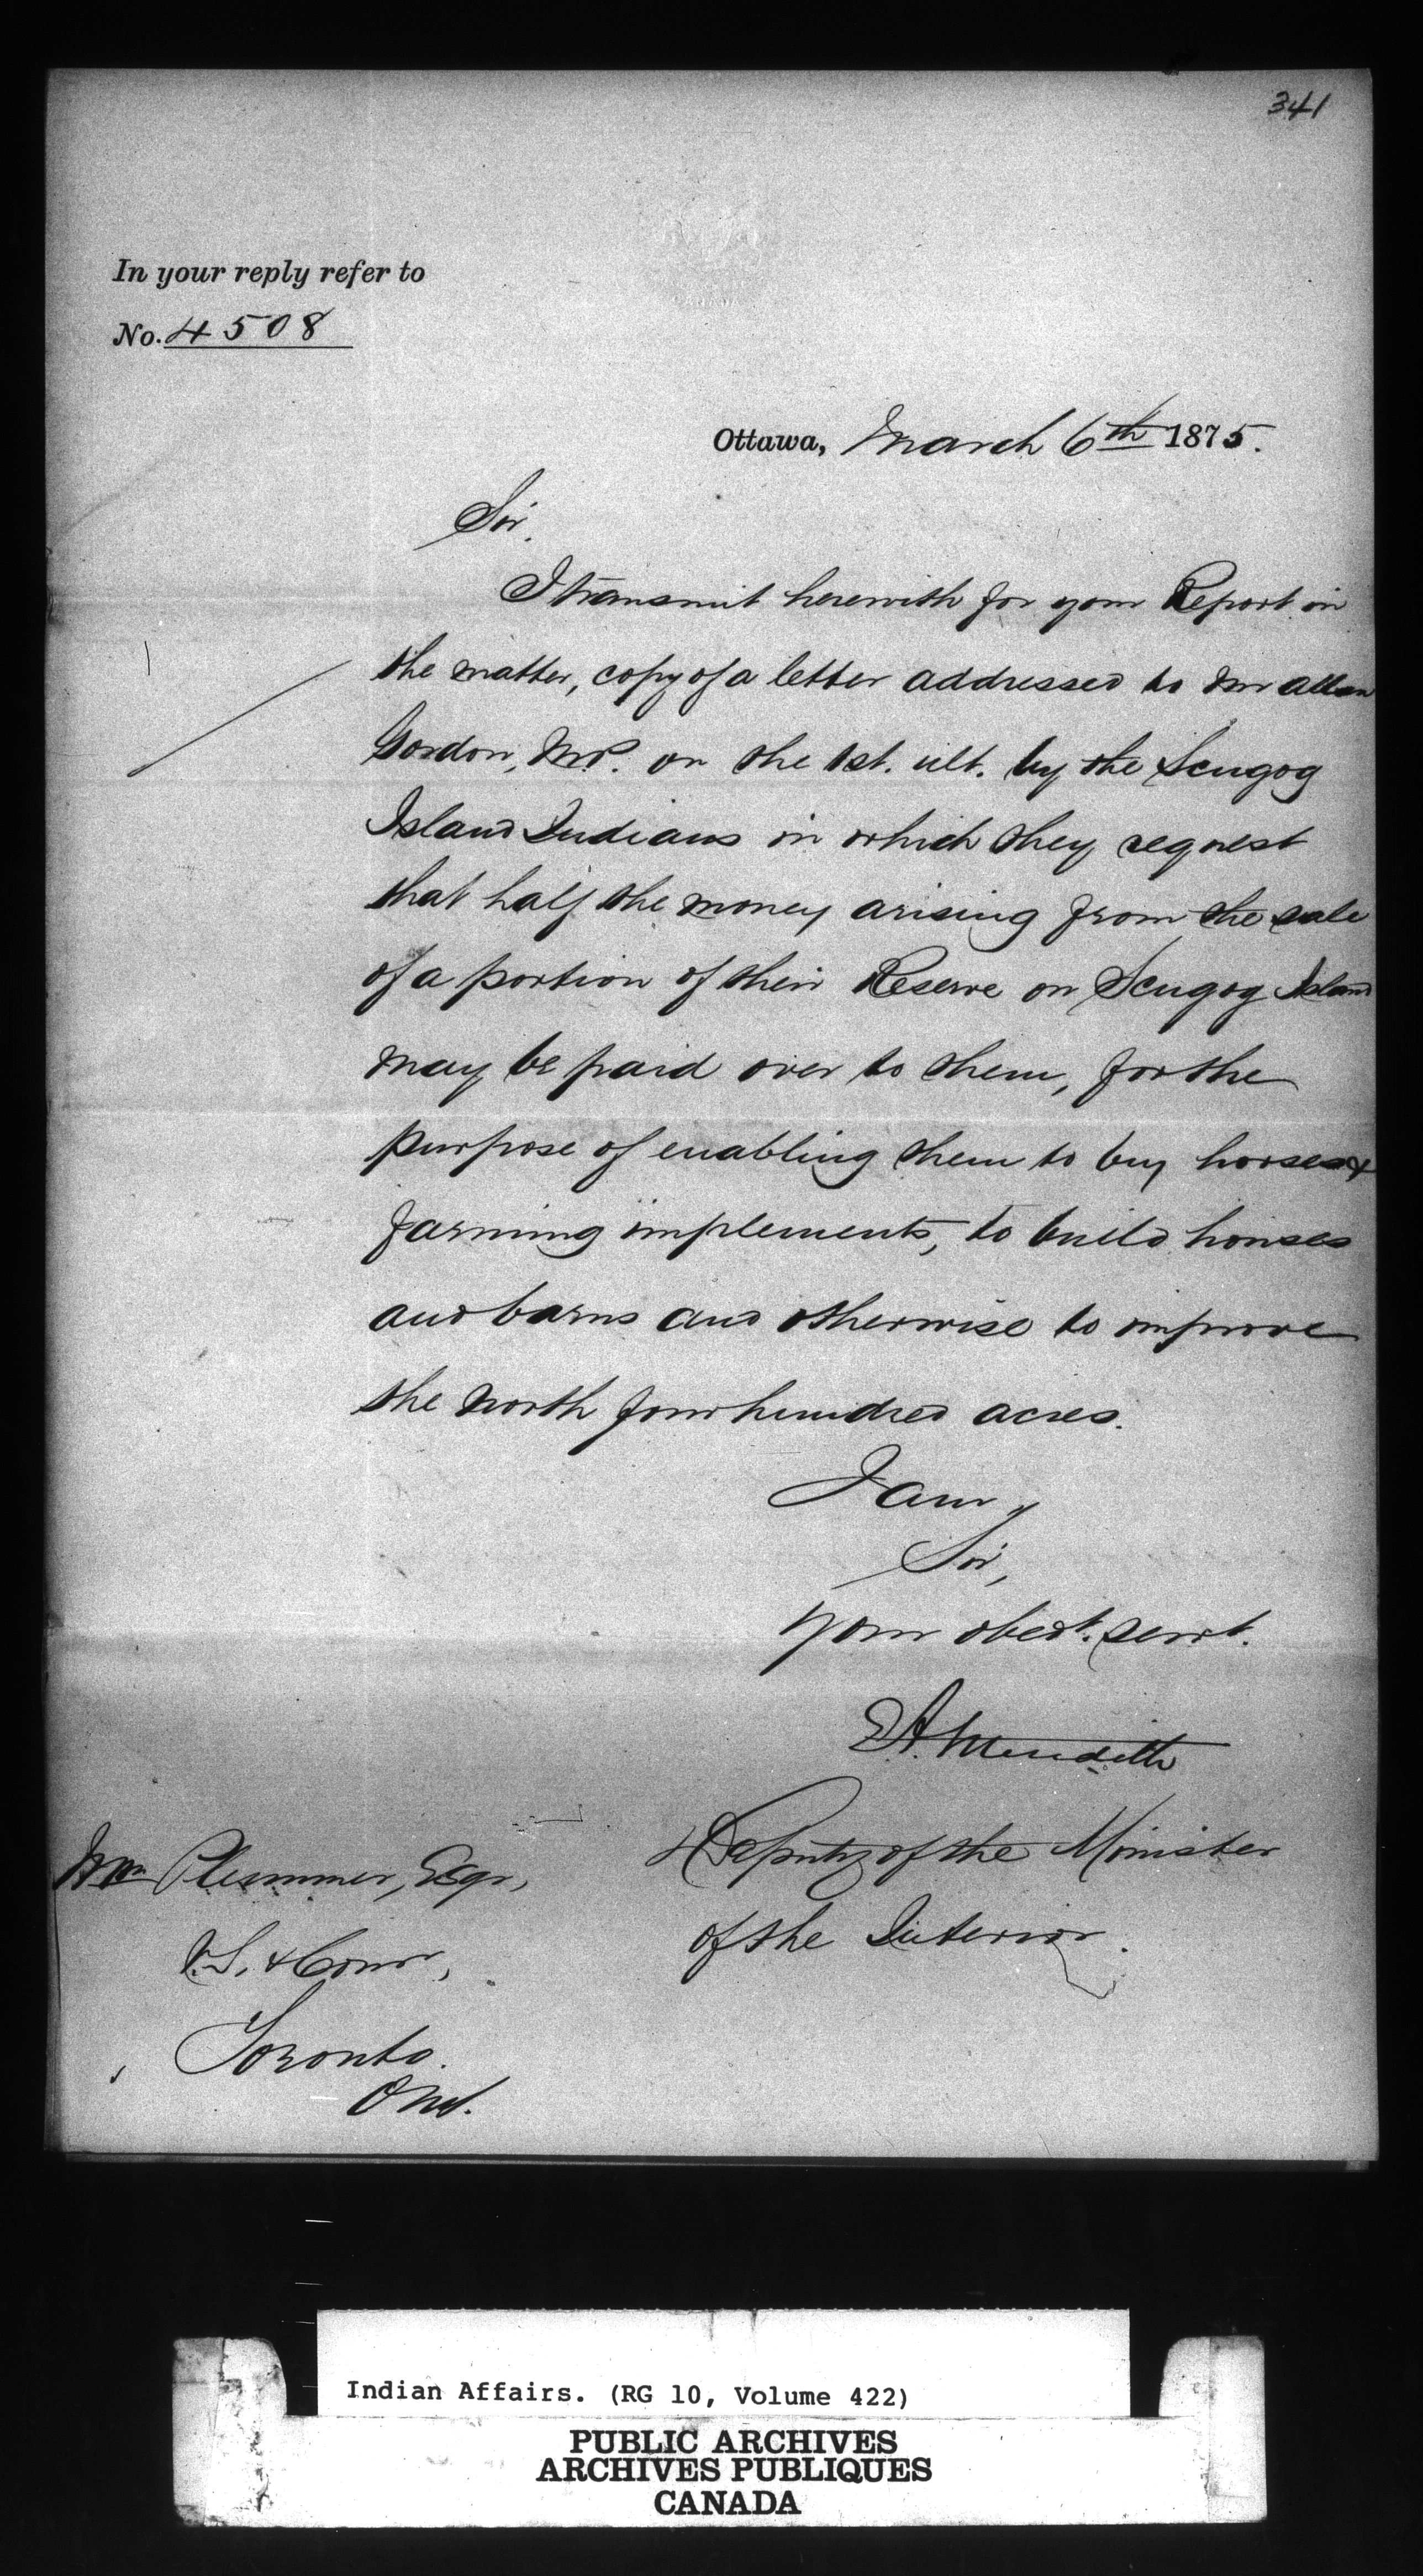 341
In your reply refer to
No. 4508
Ottawa, March 6th 1875.
Sir,
I transmit herewith for your Report in
the matter, copy of a letter addressed to Mr Allan
Gordon, M.P. on the 1st. ult. by the Scugog
Island Indians in which they request
that half the money arising from the sale
of a portion of their Reserve on Scugog Island
may be paid over to them, for the
purpose of enabling them to buy horses &
farming implements, to build houses
and barns and otherwise to improve
the North four hundred acres.
I am,
Sir,
Your obedt. servt.
E A. Meredith
Deputy of the Minister
of the Interior.
Wm Plummer, Esqr,
V.S. & Comr,
Toronto.
Ont.
CANADA
Indian Affairs. (RG 10, Volume 422)
PUBLIC ARCHIVES
ARCHIVES PUBLIQUES
CANADA